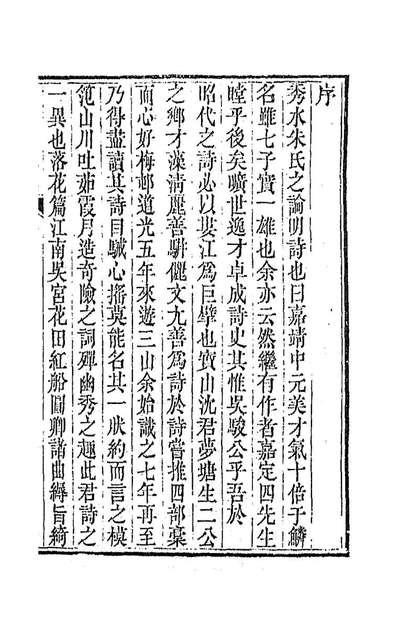 序
秀水朱氏之論明詩也曰嘉靖中元美才氣十倍于鱗
名雖七子實一雄也余亦云然繼有作者嘉定四先生
瞠乎後矣曠世逸才卓成詩史其惟吳駿公乎吾於
昭代之詩必以婁江爲巨擘也寶山沈君夢塘生二公
之鄉才藻淸麗善駢儷文尤善爲詩於詩嘗推四部稾
而心好梅邨道光五年來遊三山余始識之七年再至
乃得盡讀其詩目駴心搖莫能名其一狀約而言之模
笵山川吐茹霞月造奇險之詞殫幽秀之趣此君詩之
一異也落花篇江南吳宮花田紅船圓卿諸曲縟旨綺